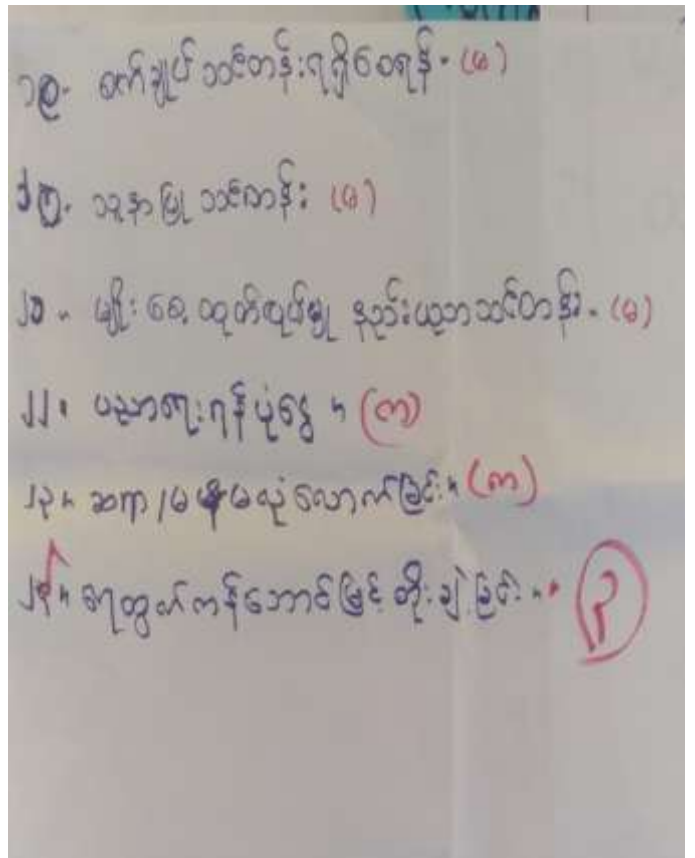 ၁၉. စက်ချုပ်သင်တန်းရရှိရေးရန် - (မ)
၂၀. သူနာပြုသင်တန်း (မ)
၂၁. မျိုးစေ့ထုတ်လုပ်မှု နည်းယူဘသင်တန်း - (မ)
၂၂. ပညာရေးရန်ပုံငွေ (က)
၂၃. ဆရာ/မ မလုံလောက်ခြင်း (က)
၂၄. ရေထွက်ကန်ဘောင်မြှင့် တိုးချဲ့ခြင်း